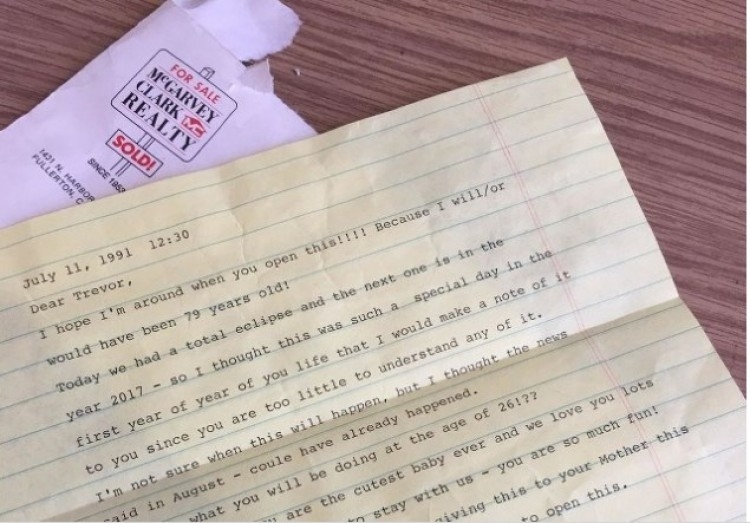 FOR SALE
McGARVEY
CLARK MC
REALTY
SOLD!
SINCE 1952
1431 N. HARBOR
FULLERTON, C
July 11, 1991 12:30
Dear Trevor,
I hope I'm around when you open this!!!! Because I will/or
would have been 79 years old!
Today we had a total eclipse and the next one is in the
year 2017 - so I thought this was such a special day in the
first year of year of you life that I would make a note of it
to you since you are too little to understand any of it.
I'm not sure when this will happen, but I thought the news
said in August - could have already happened.
what you will be doing at the age of 26!??
are the cutest baby ever and we love you lots
to stay with us - you are so much fun!
giving this to your Mother this
to open this.